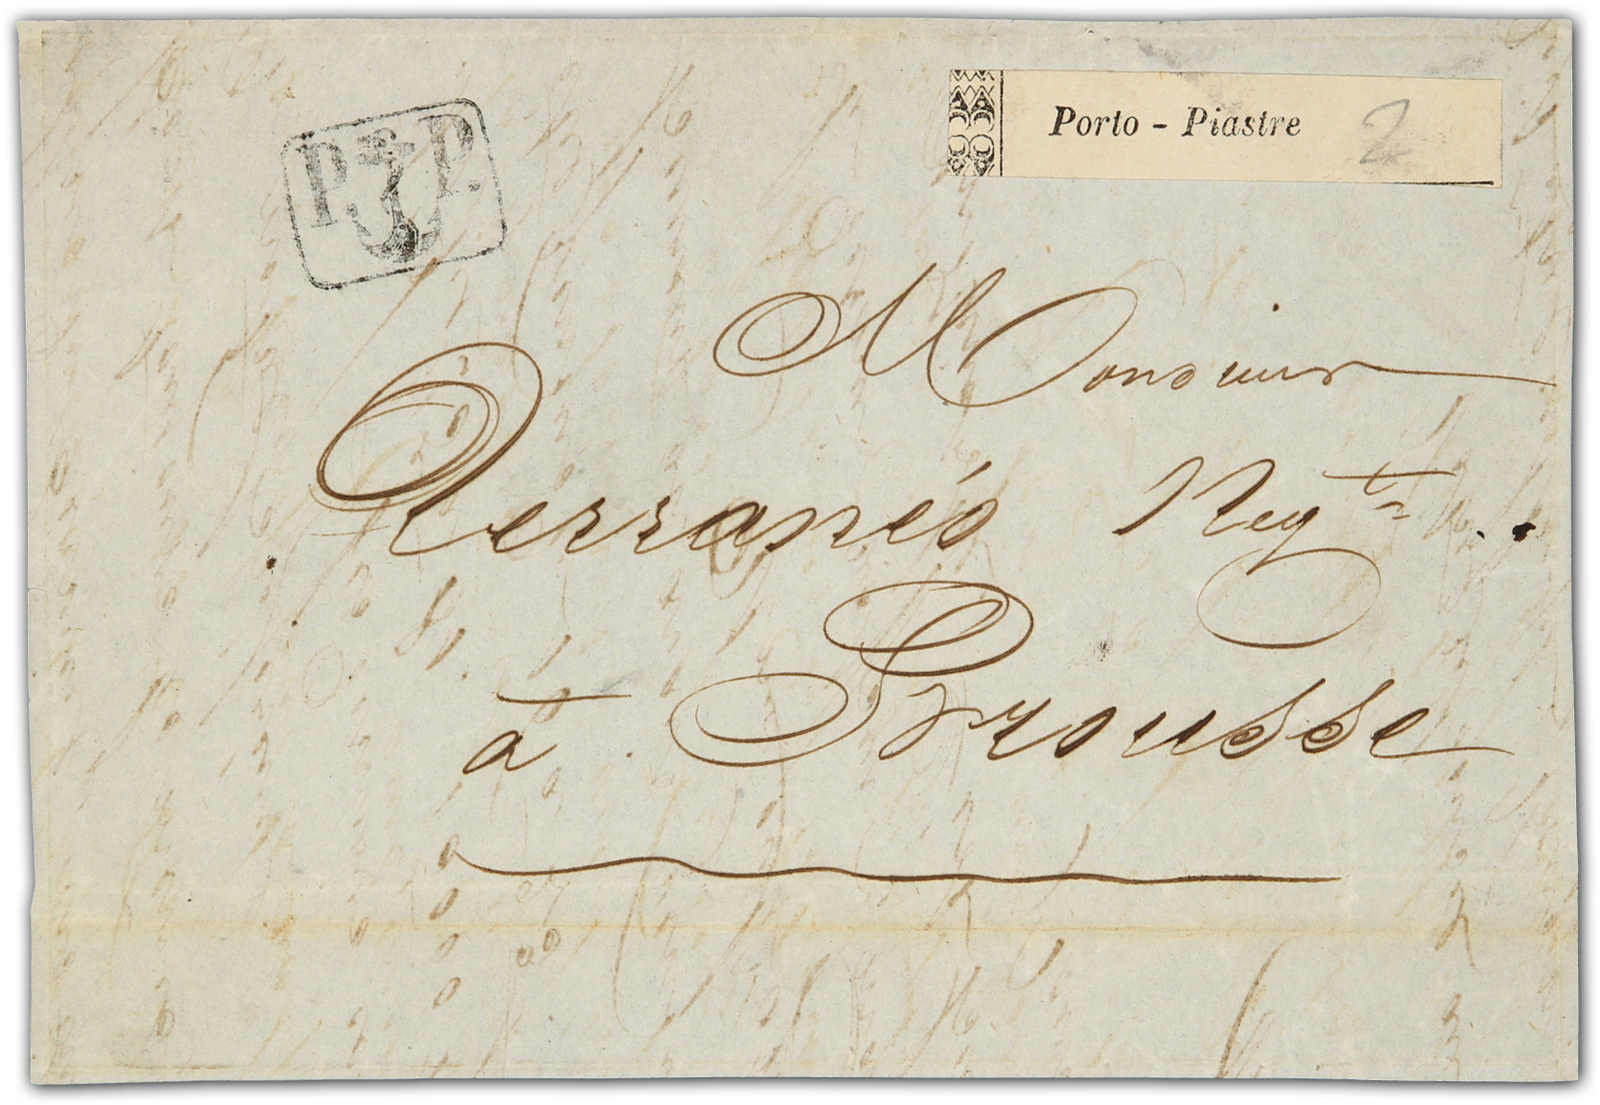 P. P.
Porto - Piastre 2
Monsieur
Terranéo Neg.ts
à Brousse